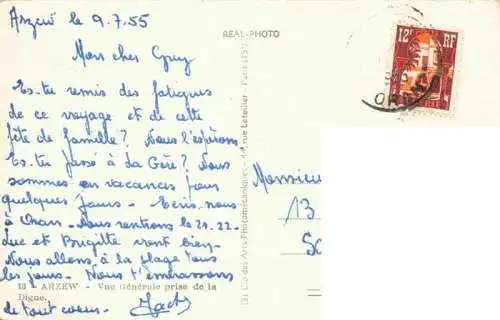 Arzew le 9.7.55
Mon cher Guy
Es-tu remis des fatigues
de ce voyage et de cette
fête de famille ? Nous l'espérons.
Es-tu passé à La Gère ? Nous
sommes en vacances pour
quelques jours - Écris nous
à Oran - Nous rentrons le 21.22
Luc et Brigitte vont bien
Nous allons à la plage tous
les jours. Nous t'embrassons
13 - ARZEW - Vue Générale prise de la
Digue.
de tout coeur. Jack
REAL-PHOTO
Cie des Arts Photomécaniques - rue Letellier - Paris (15e)
12F RF
ORAN
Monsieur
13